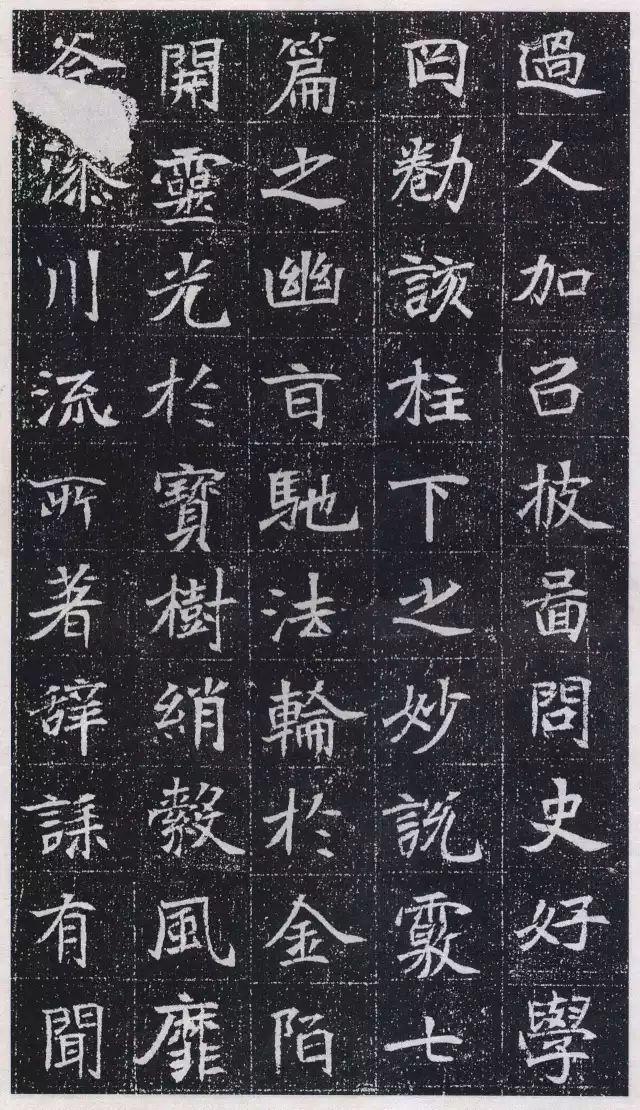 過人加召披啚問史好學
罔勌該柱下之妙說覈七
篇之幽旨馳法輪於金陌
開靈光於寶樹綃縠風靡
川流所著辭誄有聞